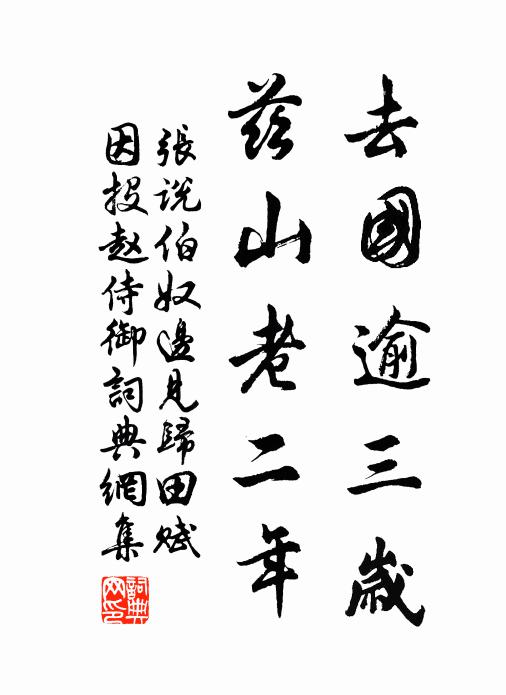 去國逾三歲
茲山老二年
張說伯奴邊見歸田賦
因投趙侍御詞典網集
詞典網印